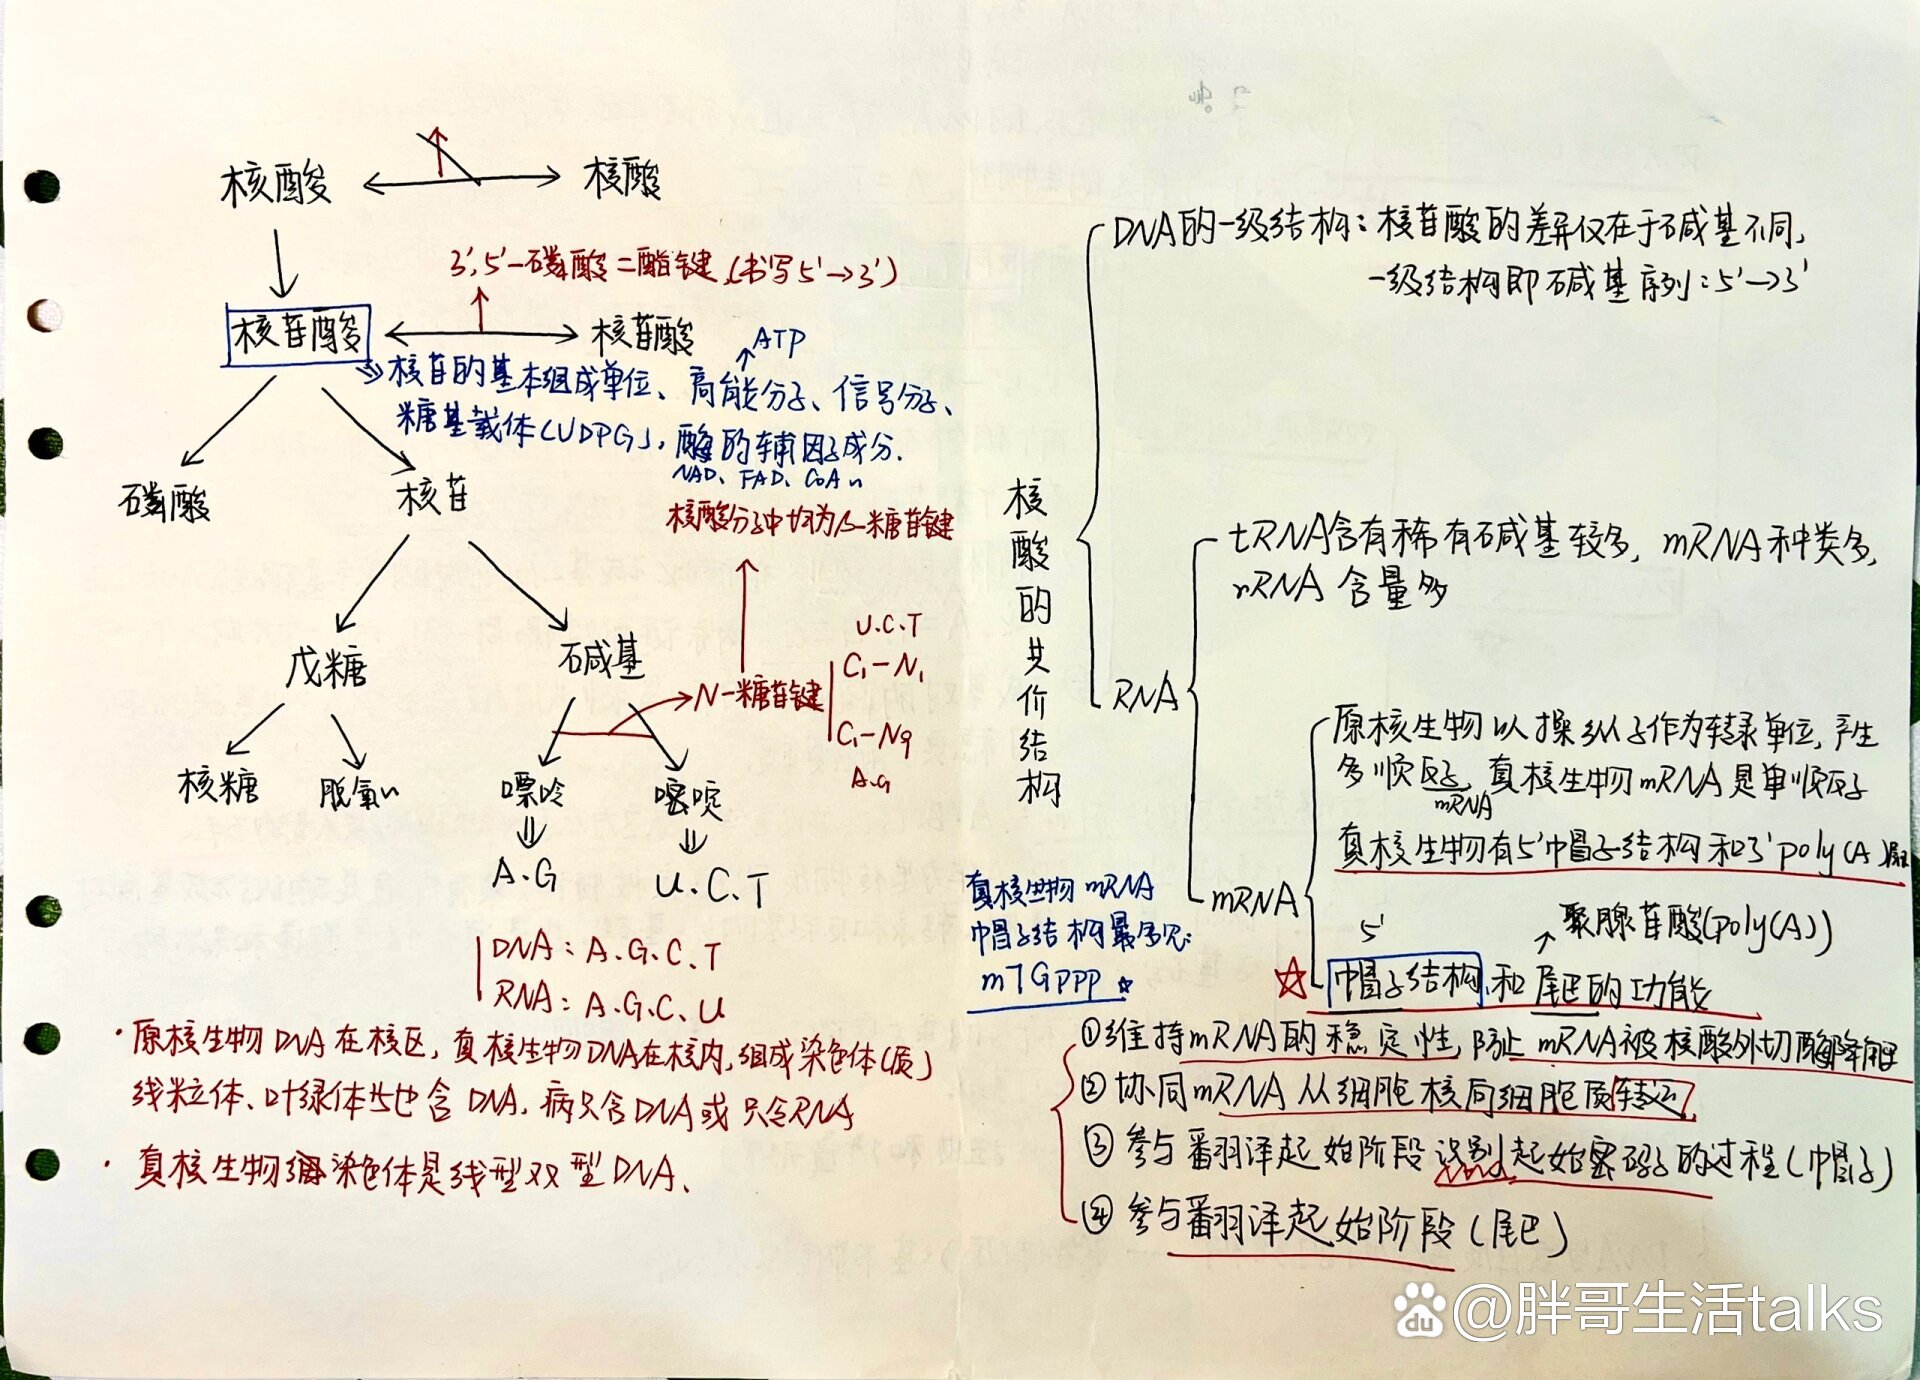 核酸 核酸
3',5'-磷酸二酯键(书写5'→3')
核苷酸 核苷酸
ATP
核苷的基本组成单位、高能分子、信号分子、
糖基载体(UDPG),酶的辅因子成分.
NAD、FAD、CoA
磷酸 核苷
核酸分子中均为β-糖苷键
戊糖 碱基
N-糖苷键
U.C.T
C₁-N₁
C₁-N9
A.G
核糖 脱氧〃 嘌呤 嘧啶
A.G U.C.T
DNA:A.G.C.T
RNA:A.G.C.U
·原核生物DNA在核区,真核生物DNA在核内,组成染色体(质)
线粒体、叶绿体也含DNA,病只含DNA或只含RNA
·真核生物染色体是线型双型DNA、
核酸的共价结构
DNA的一级结构:核苷酸的差异仅在于碱基不同,
一级结构即碱基序列:5'→3'
RNA
tRNA含有稀有碱基较多,mRNA种类多,
rRNA含量多
mRNA
原核生物以操纵子作为转录单位,产生
多顺反子,真核生物mRNA是单顺反子
mRNA
真核生物有5'帽子结构和3'poly(A)尾
真核生物mRNA
帽子结构最多见:
m7Gppp☆
5' 聚腺苷酸(poly(A))
☆帽子结构和尾巴的功能
①维持mRNA的稳定性,防止mRNA被核酸外切酶降解
②协同mRNA从细胞核向细胞质转运
③参与翻译起始阶段识别起始密码子的过程(帽子)
④参与翻译起始阶段(尾巴)
du @胖哥生活talks